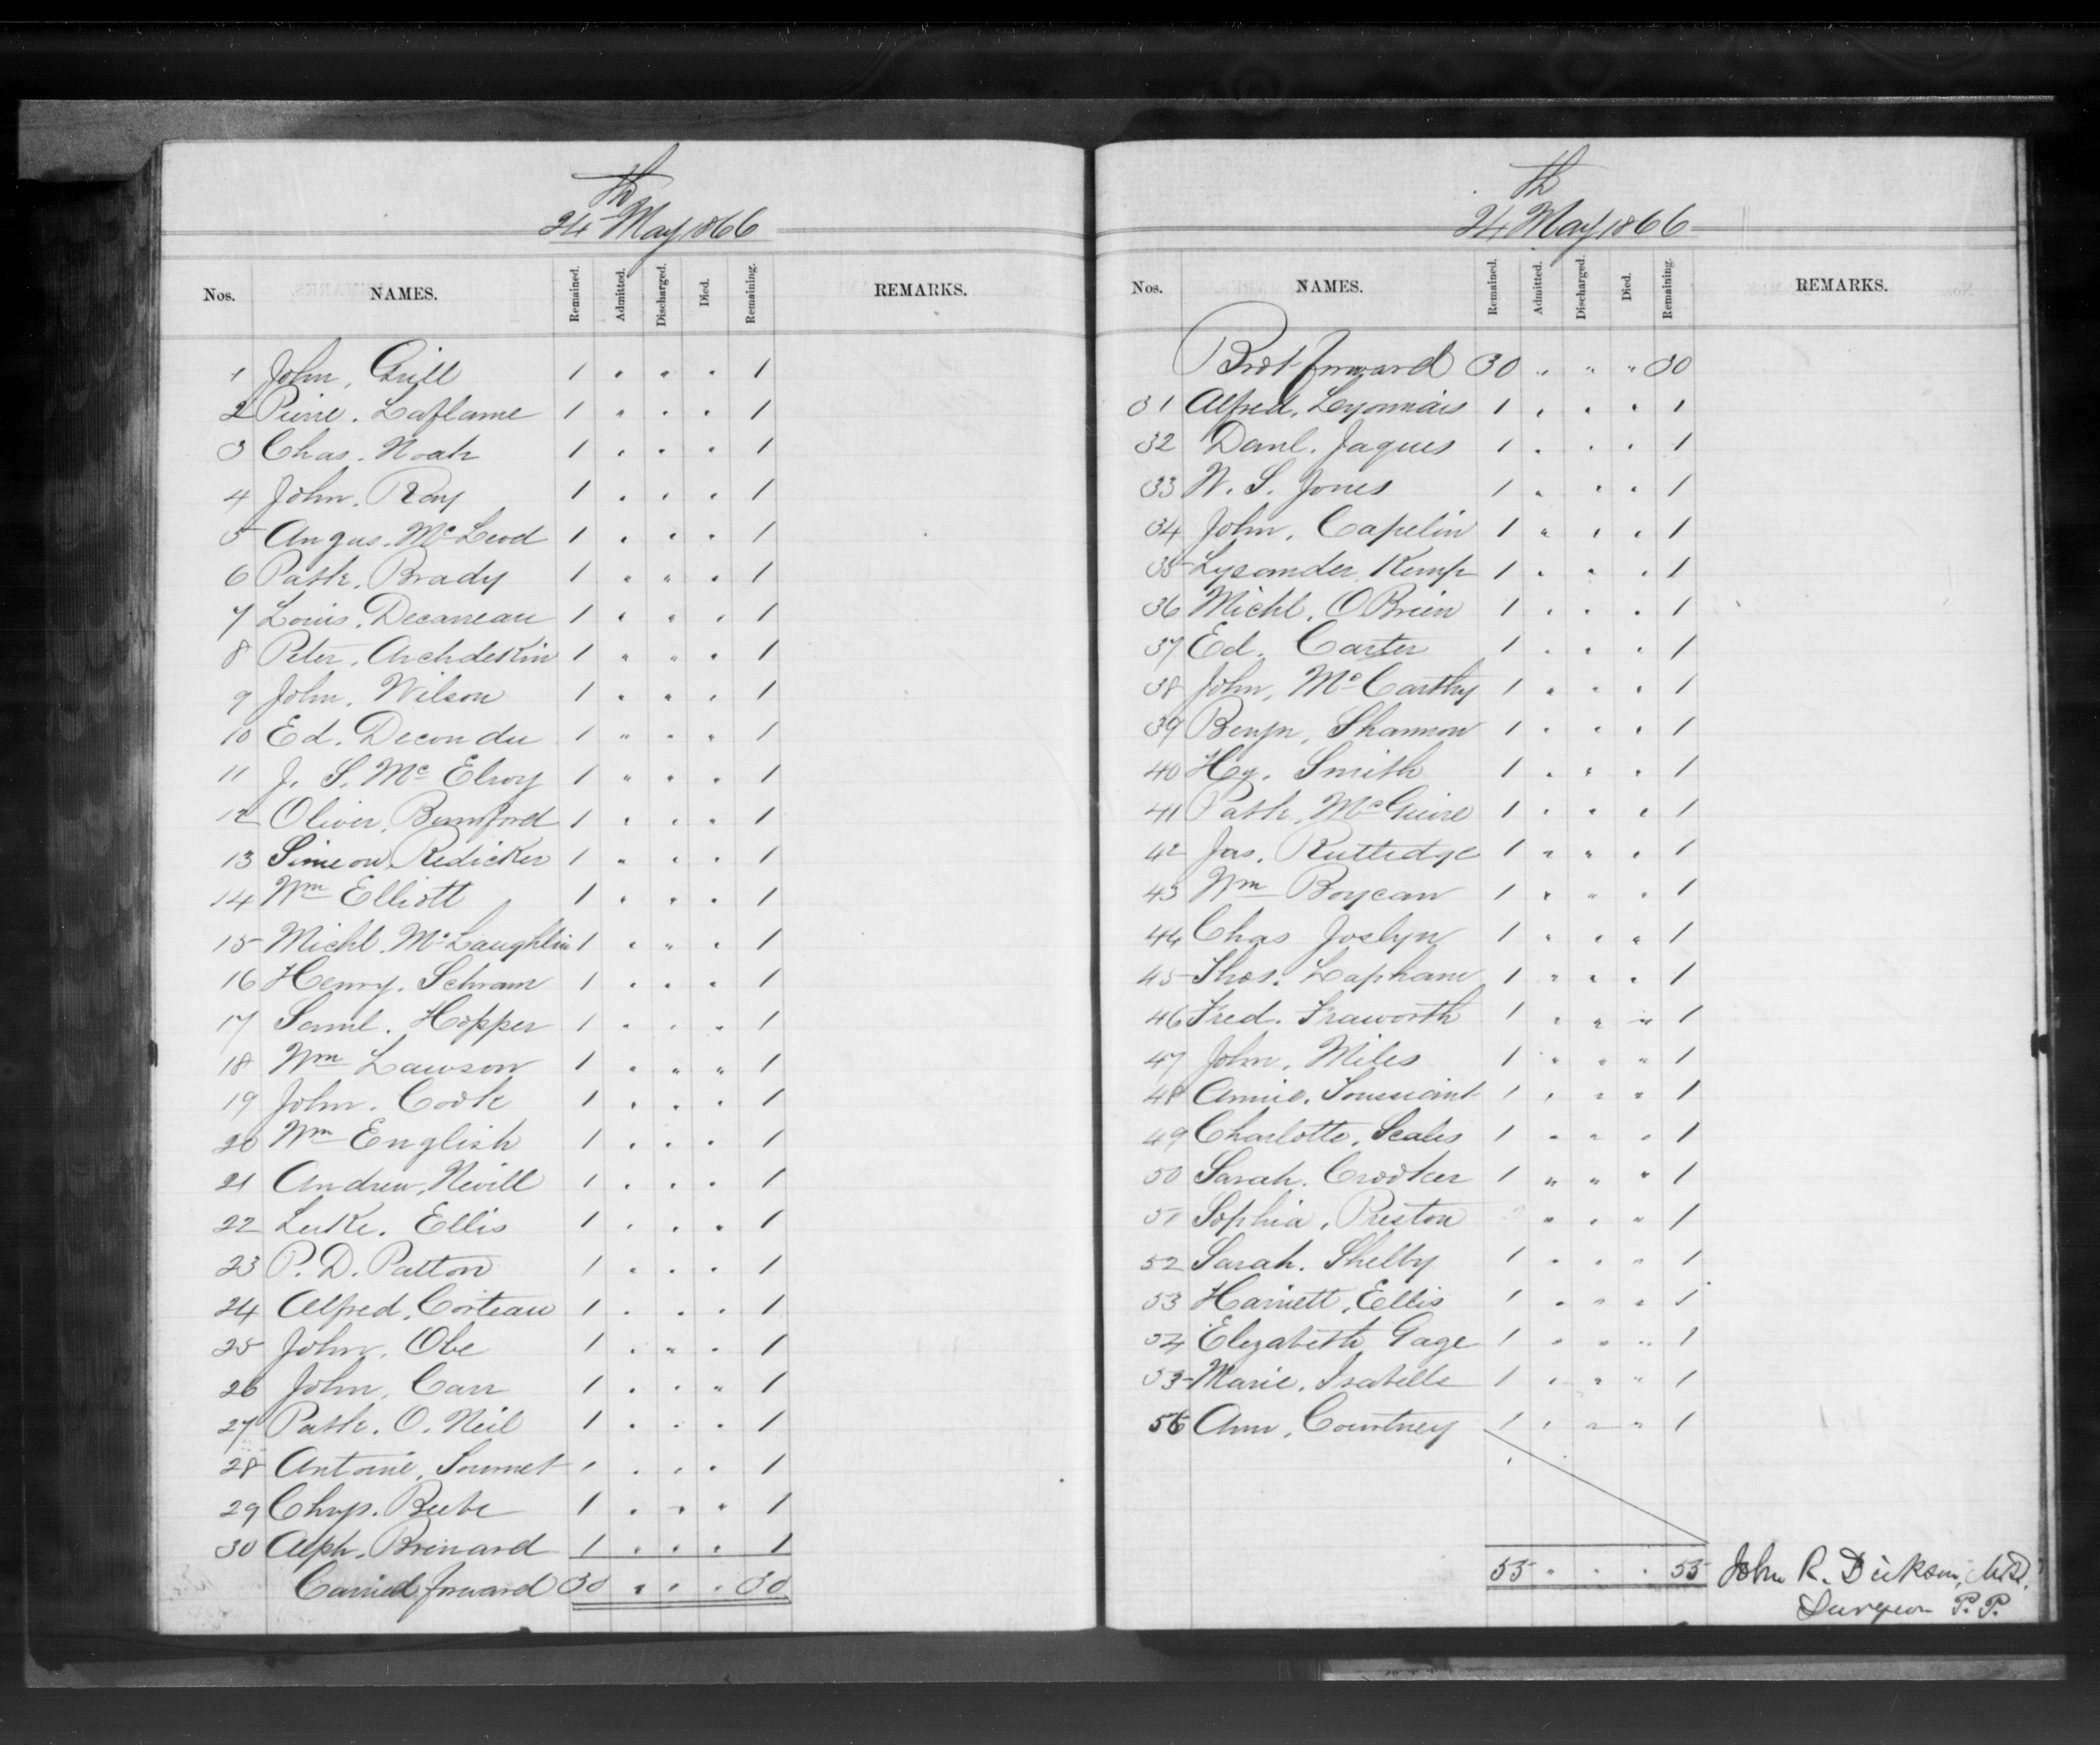 24th May 1866
Nos. NAMES. Remained. Admitted. Discharged. Died. Remaining. REMARKS.
1 John, Grill 1 " " " 1
2 Pierre. Laflame 1 " " " 1
3 Chas. Noah 1 " " " 1
4 John. Ray 1 " " " 1
5 Angus. McLeod 1 " " " 1
6 Patk. Brady 1 " " " 1
7 Louis. Decaneau 1 " " " 1
8 Peter. Archdekin 1 " " " 1
9 John. Wilson 1 " " " 1
10 Ed. Decondu 1 " " " 1
11 J. S. McElroy 1 " " " 1
12 Oliver. Bumford 1 " " " 1
13 Simeon Redicker 1 " " " 1
14 Wm Elliott 1 " " " 1
15 Michl. McLaughlin 1 " " " 1
16 Henry. Schram 1 " " " 1
17 Saml. Hopper 1 " " " 1
18 Wm Lawson 1 " " " 1
19 John. Cook 1 " " " 1
20 Wm English 1 " " " 1
21 Andrew, Nevill 1 " " " 1
22 Luke. Ellis 1 " " " 1
23 P. D. Patton 1 " " " 1
24 Alfred. Corteau 1 " " " 1
25 John. Obe 1 " " " 1
26 John. Carr 1 " " " 1
27 Patk. O. Neil 1 " " " 1
28 Antoine. 1 " " " 1
29 Chrys. Beebe 1 " " " 1
30 Alph. Brinard 1 " " " 1
Carried forward 30 " " " 30
24th May 1866
Nos. NAMES. Remained. Admitted. Discharged. Died. Remaining. REMARKS.
Brot forward 30 " " " 30
31 Alfred. Leyonnais 1 " " " 1
32 Danl. Jaques 1 " " " 1
33 W. S. Jones 1 " " " 1
34 John. Capelin 1 " " " 1
35 Lysander Kemp 1 " " " 1
36 Michl. OBrien 1 " " " 1
37 Ed. Carter 1 " " " 1
38 John, McCarthy 1 " " " 1
39 Benjn, Shannon 1 " " " 1
40 Hy. Smith 1 " " " 1
41 Patk, McGuire 1 " " " 1
42 Jas. Ruttedge 1 " " " 1
43 Wm Boycan 1 " " " 1
44 Chas Joslyn 1 " " " 1
45 Thos. Lapham 1 " " " 1
46 Fred. Fraworth 1 " " " 1
47 John. Miles 1 " " " 1
48 Annie. Toussiaint 1 " " " 1
49 Charlotte. Scales 1 " " " 1
50 Sarah. Crooker 1 " " " 1
51 Sophia. Preston " " " 1
52 Sarah. Shelby 1 " " " 1
53 Harriett. Ellis 1 " " " 1
54 Elizabeth Gage 1 " " " 1
55 Marie. Isabelle 1 " " " 1
56 Ann. Courtney 1 " " " 1
55 " " " 55 John R. Dickson, M.D.
Surgeon P. P.